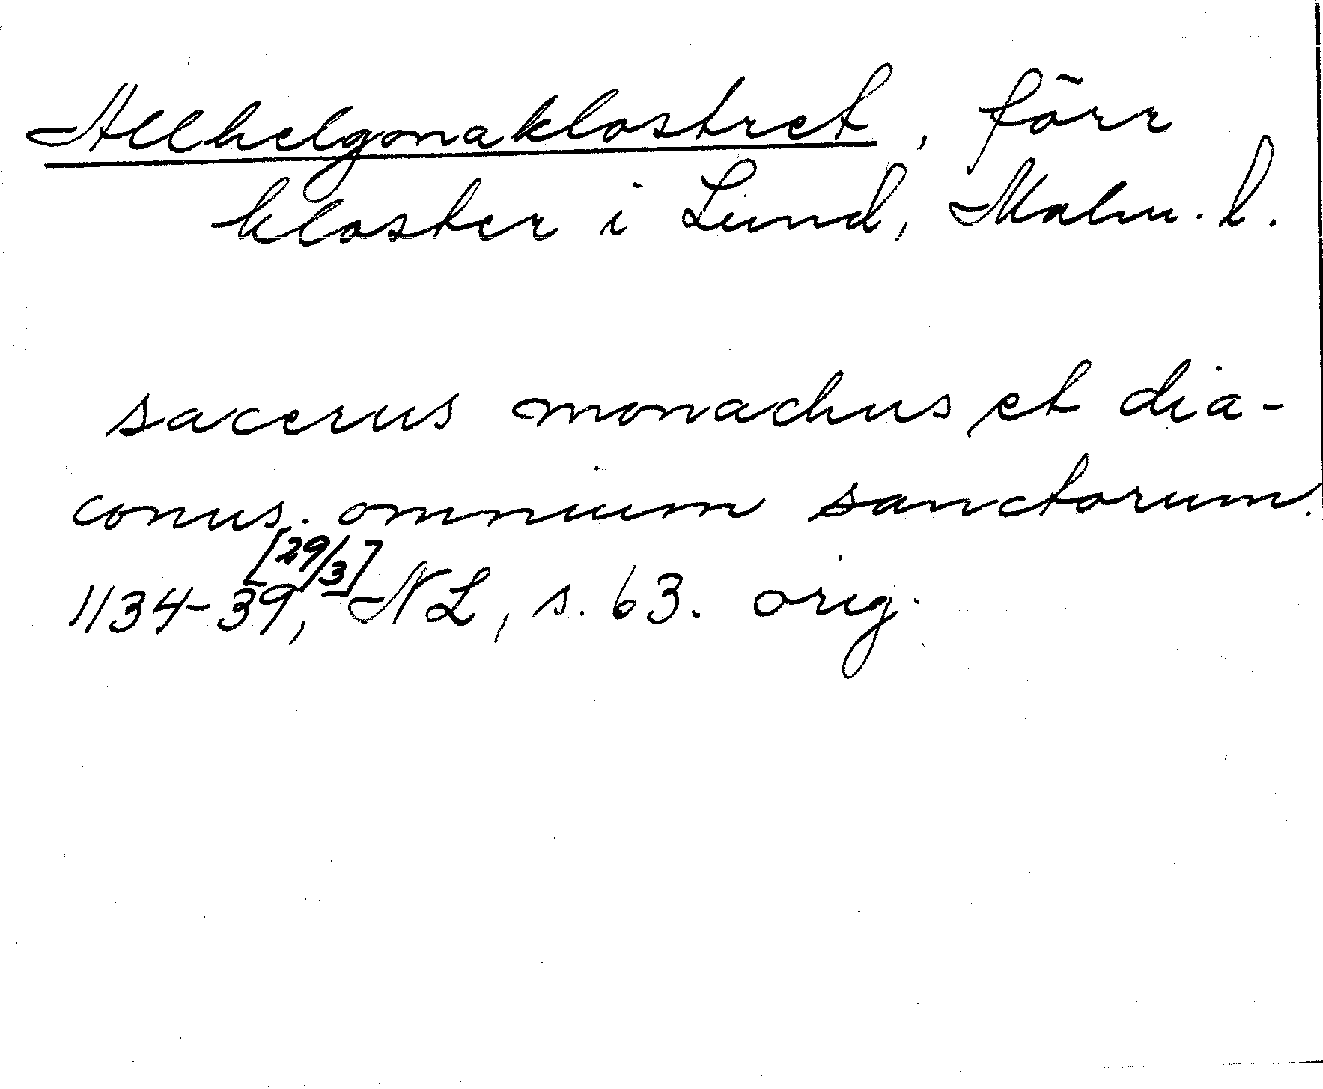 Allhelgonaklostret, förr
kloster i Lund, Malm. l.
sacerus monachus et dia-
conus. omnium sanctorum.
[29/3]
1134-39, NL, s. 63. orig.